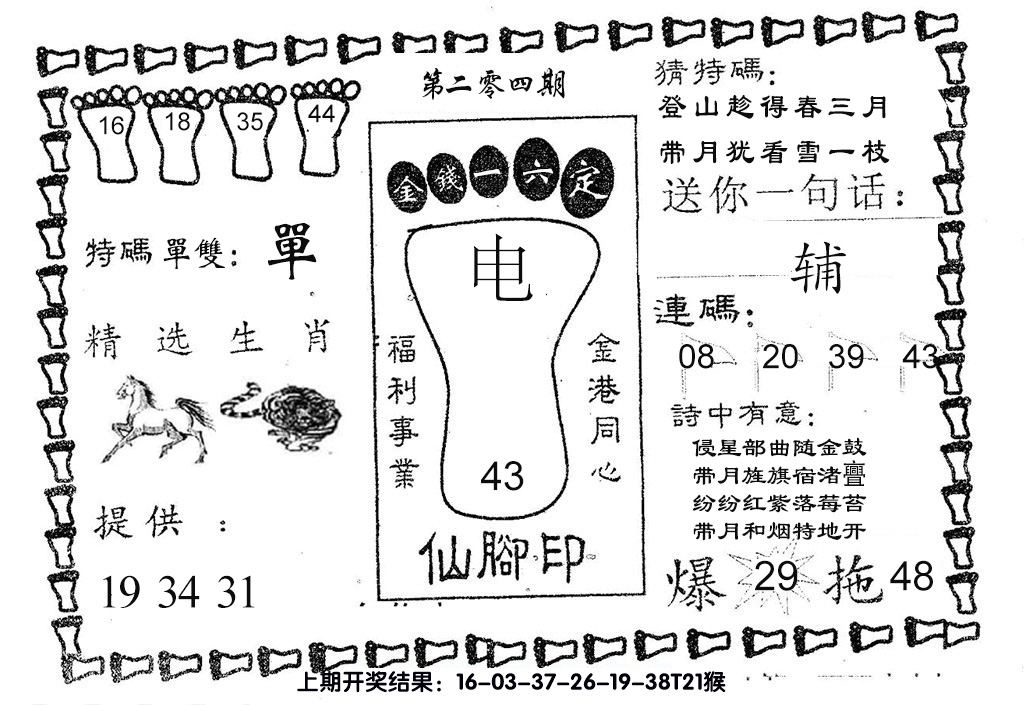 第二零四期
16 18 35 44
特碼單雙：單
精选生肖
提供：
19 34 31
金錢一六定
电
福利事業
金港同心
43
仙腳印
猜特碼：
登山趁得春三月
带月犹看雪一枝
送你一句话：
辅
連碼：
08 20 39 43
詩中有意：
侵星部曲随金鼓
带月旌旗宿渚亹
纷纷红紫落莓苔
带月和烟特地开
爆 29 拖 48
上期开奖结果：16-03-37-26-19-38T21猴